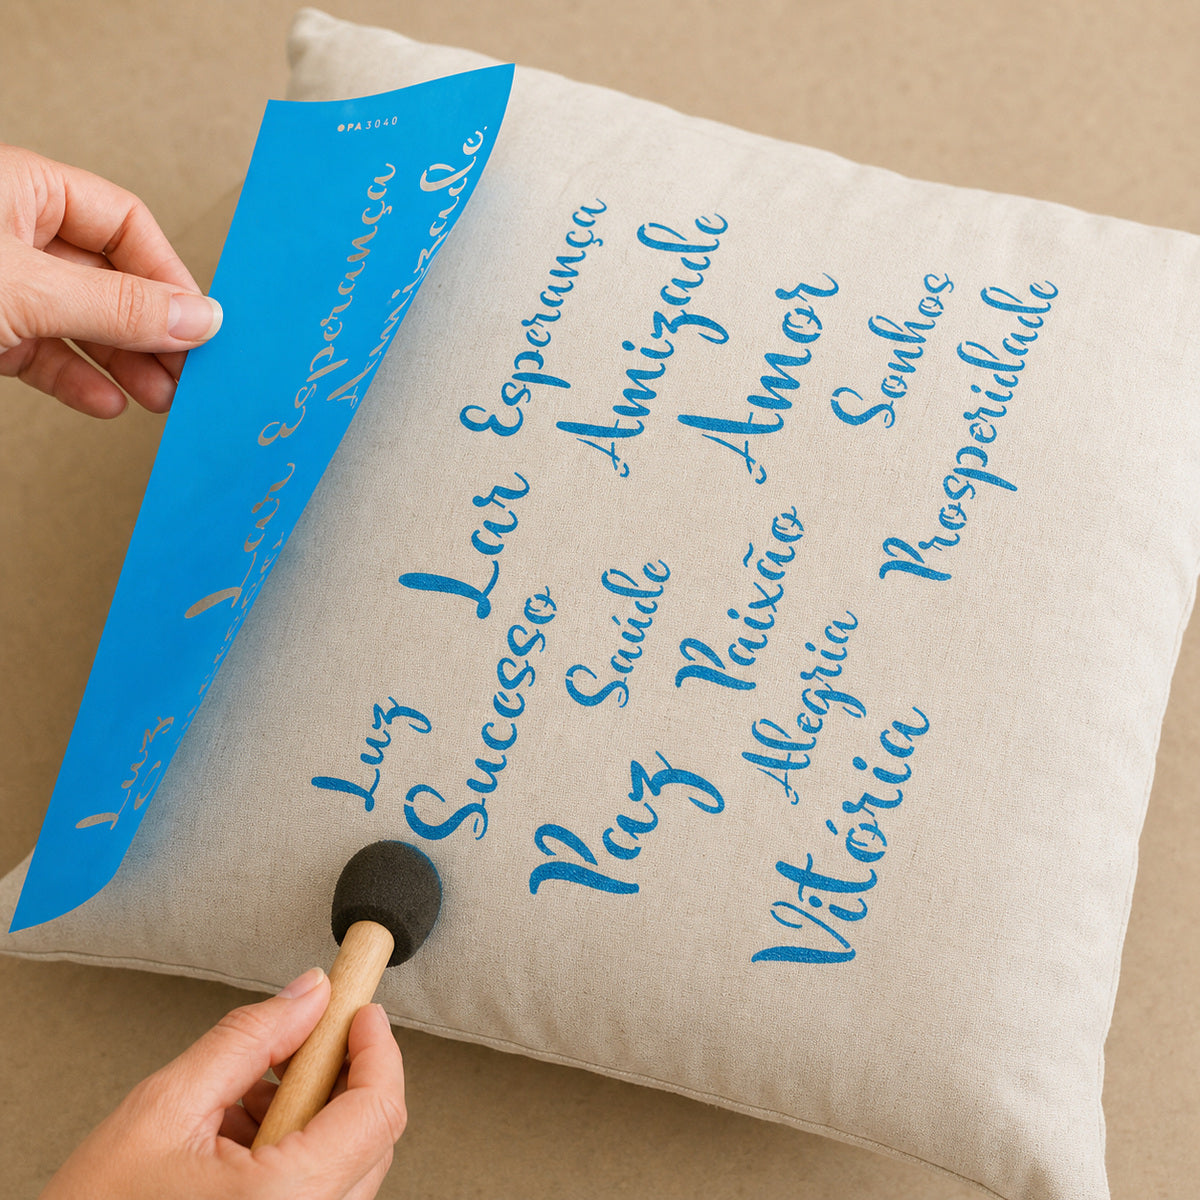 OPA 3040
Luz
Lar
Esperança
Amizade
Esperança
Amizade
Amor
Sonhos
Prosperidade
Lar
Sucesso
Saúde
Paixão
Alegria
Luz
Paz
Vitória